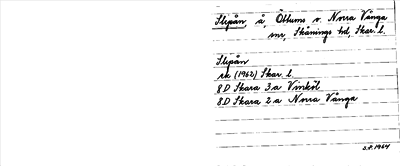 Slepån, å, Öttums o. Norra Vånga
snr, Skånings hd, Skar. l.
Slepån
rk (1962) Skar. l.
8D Skara 3a Vinköl
8D Skara 2a Norra Vånga
S.F. 1964